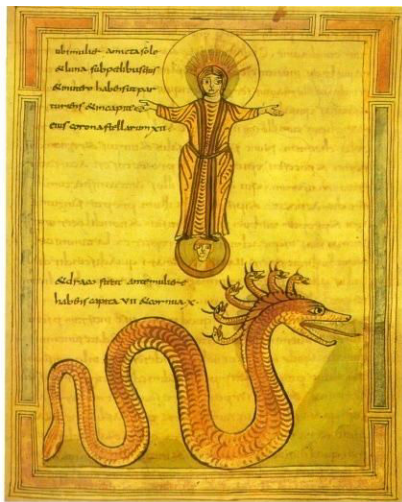 ubimulier amicta sole
&luna sub pedibus eius
&inutero habens &par
turiens &incapite
eius corona stellarum xii
&draco stetit antemuliere
habens capita vii &cornua x.